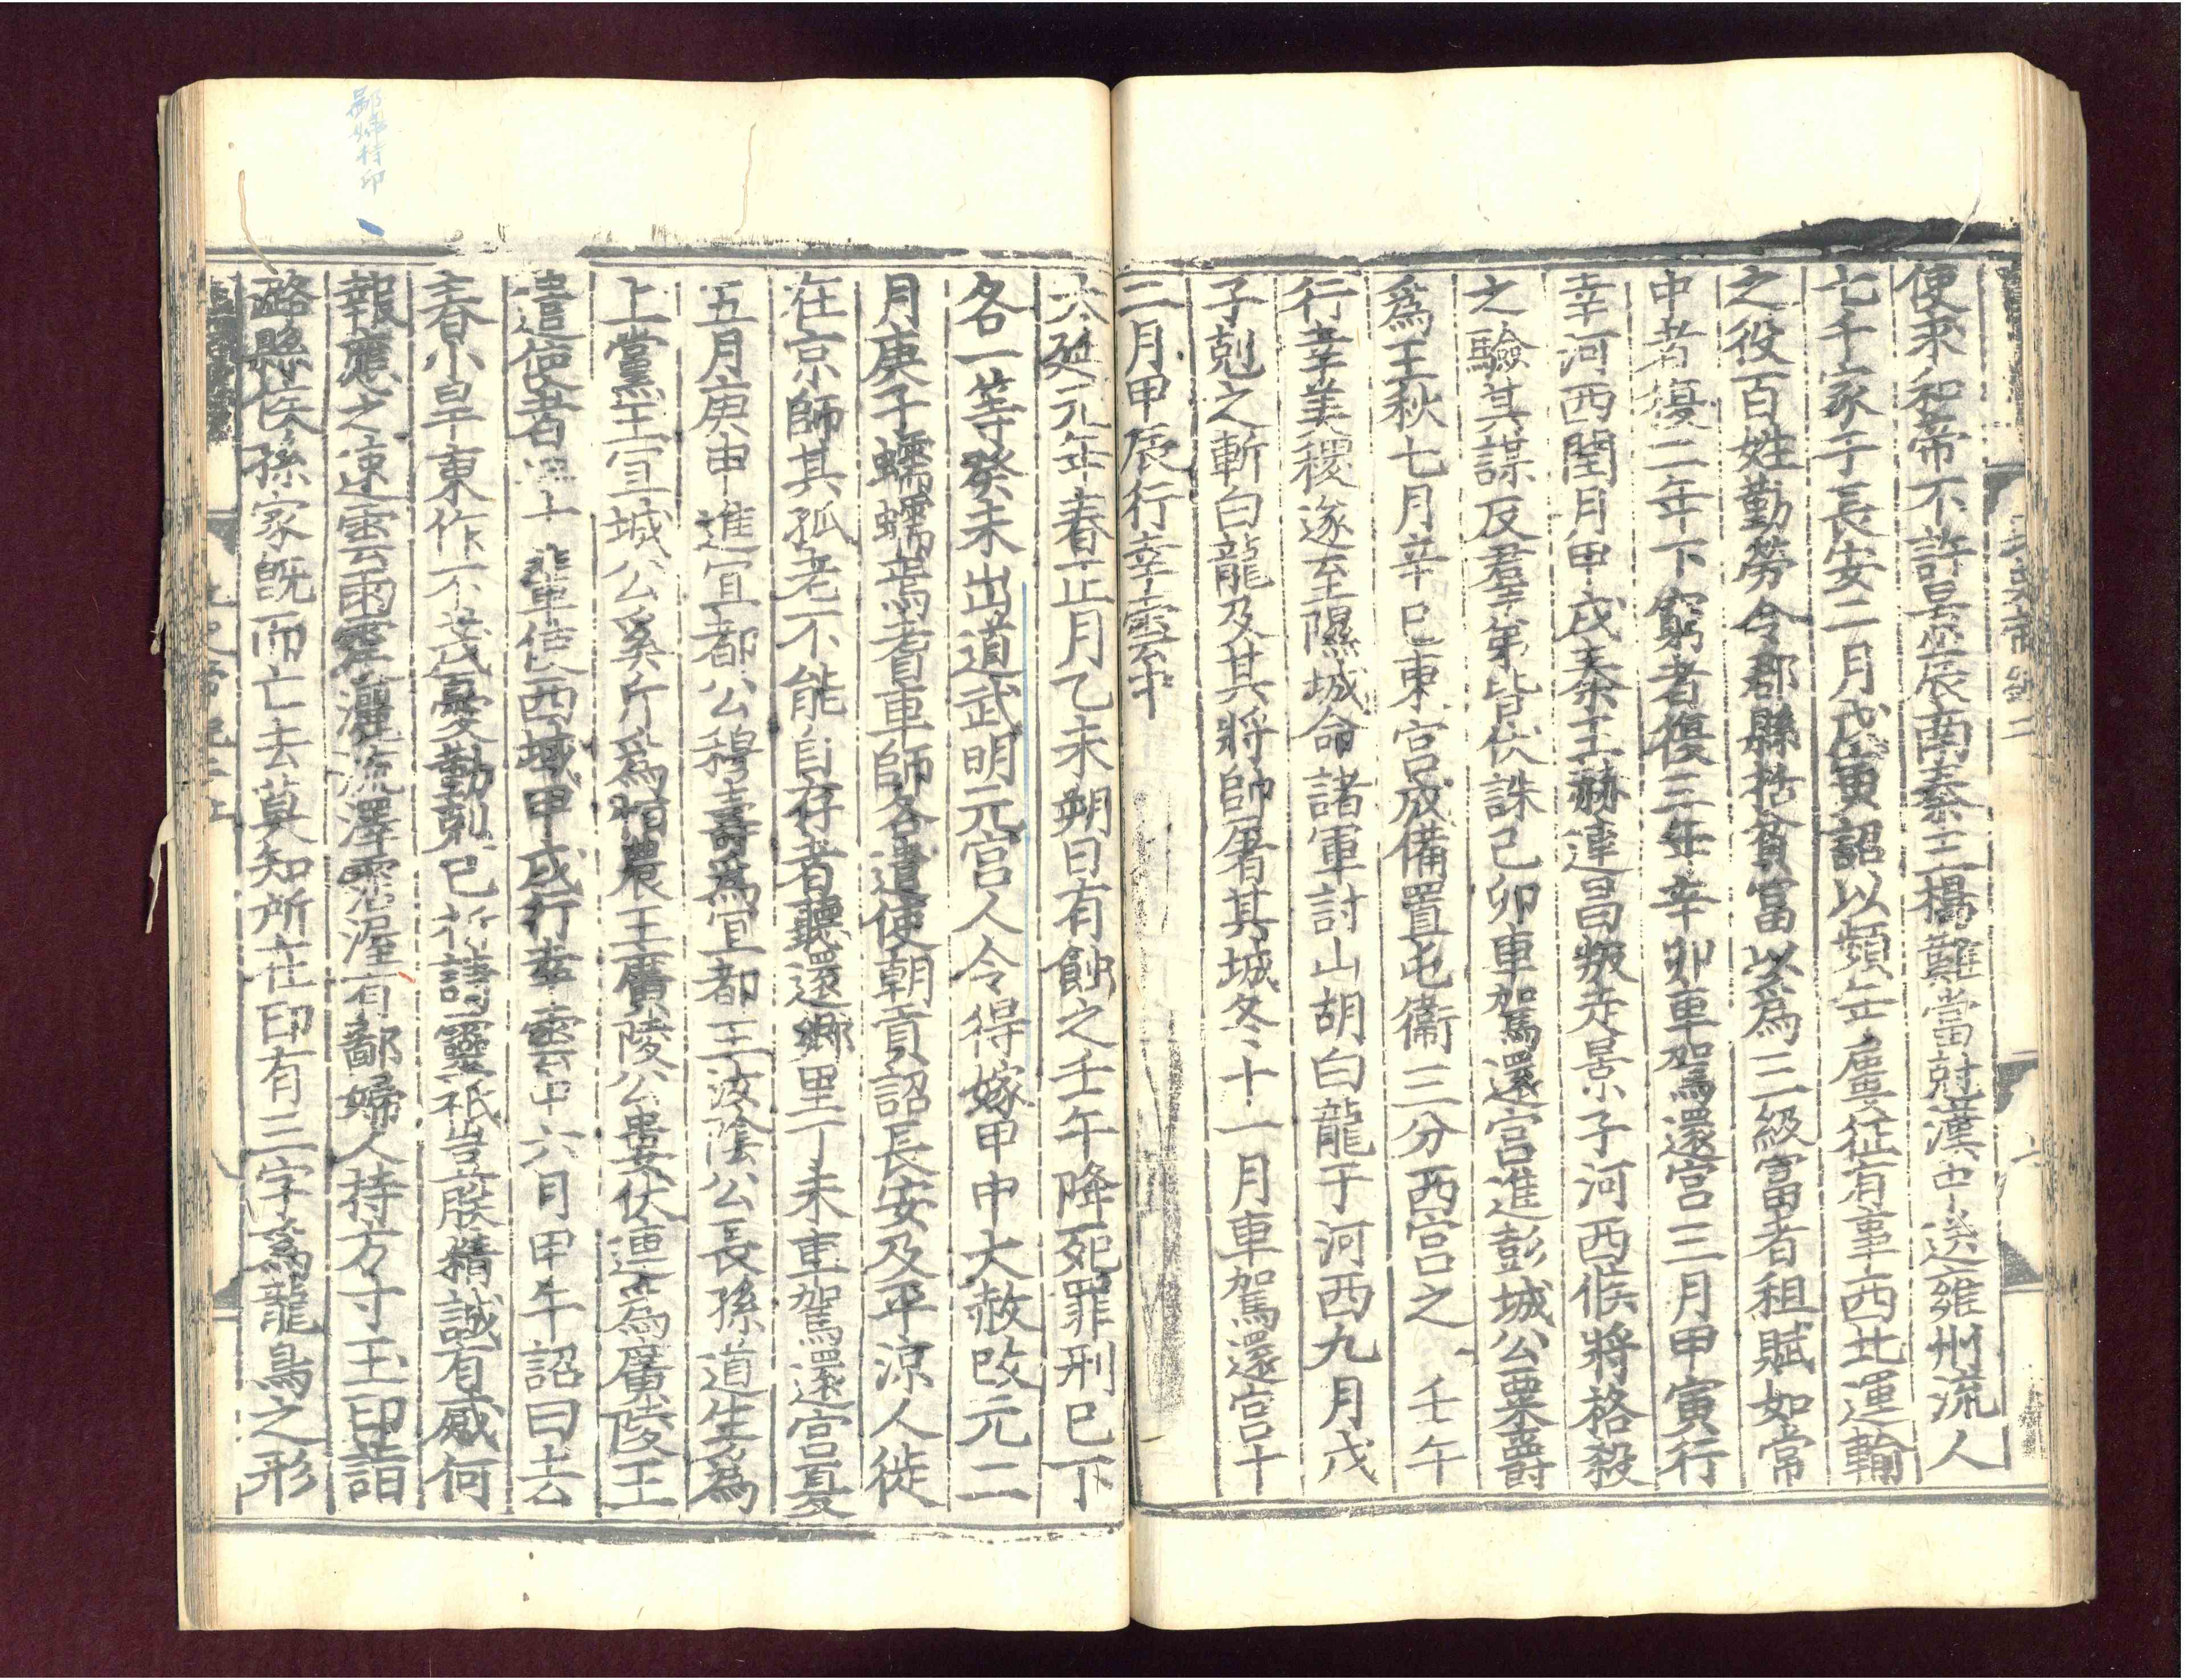 使求和帝不許景辰南秦王楊難當尅漢中送雍州流人
七千家于長安二月戊寅詔以頻年屢征有事西北運輸
之役百姓勤勞令郡縣括貧富以為三級富者租賦如常
中者復二年下窮者復三年辛卯車駕還宮三月甲寅行
幸河西閏月甲戌秦王赫連昌叛走景子河西候將格殺
之驗其謀反羣弟皆伏誅己卯車駕還宮進彭城公粟爵
為王秋七月辛巳東宮成備置屯衞三分西宮之一壬午
行幸美稷遂至隰城命諸軍討山胡白龍于河西九月戊
子剋之斬白龍及其將帥屠其城冬十一月車駕還宮十
二月甲辰行幸雲中
太延元年春正月乙未朔日有蝕之壬午降死罪刑巳下
各一等癸未出道武明元宮人令得嫁甲申大赦改元二
月庚子蠕蠕焉耆車師各遣使朝貢詔長安及平涼人徙
在京師其孤老不能自存者聽還鄉里丁未車駕還宮夏
五月庚申進宜都公穆壽為宜都王汝陰公長孫道生為
上黨王宜城公奚斤為恒農王廣陵公婁伏連為廣陵王
遣使者二十輩使西域甲戌行幸雲中六月甲午詔曰去
春小旱東作不茂憂勤剋己祈請靈祇豈朕精誠有感何
報應之速雲雨震灑流澤霑渥有鄙婦人持方寸玉印詣
潞縣侯孫家既而亡去莫知所在印有三字為龍鳥之形
鄙婦持印